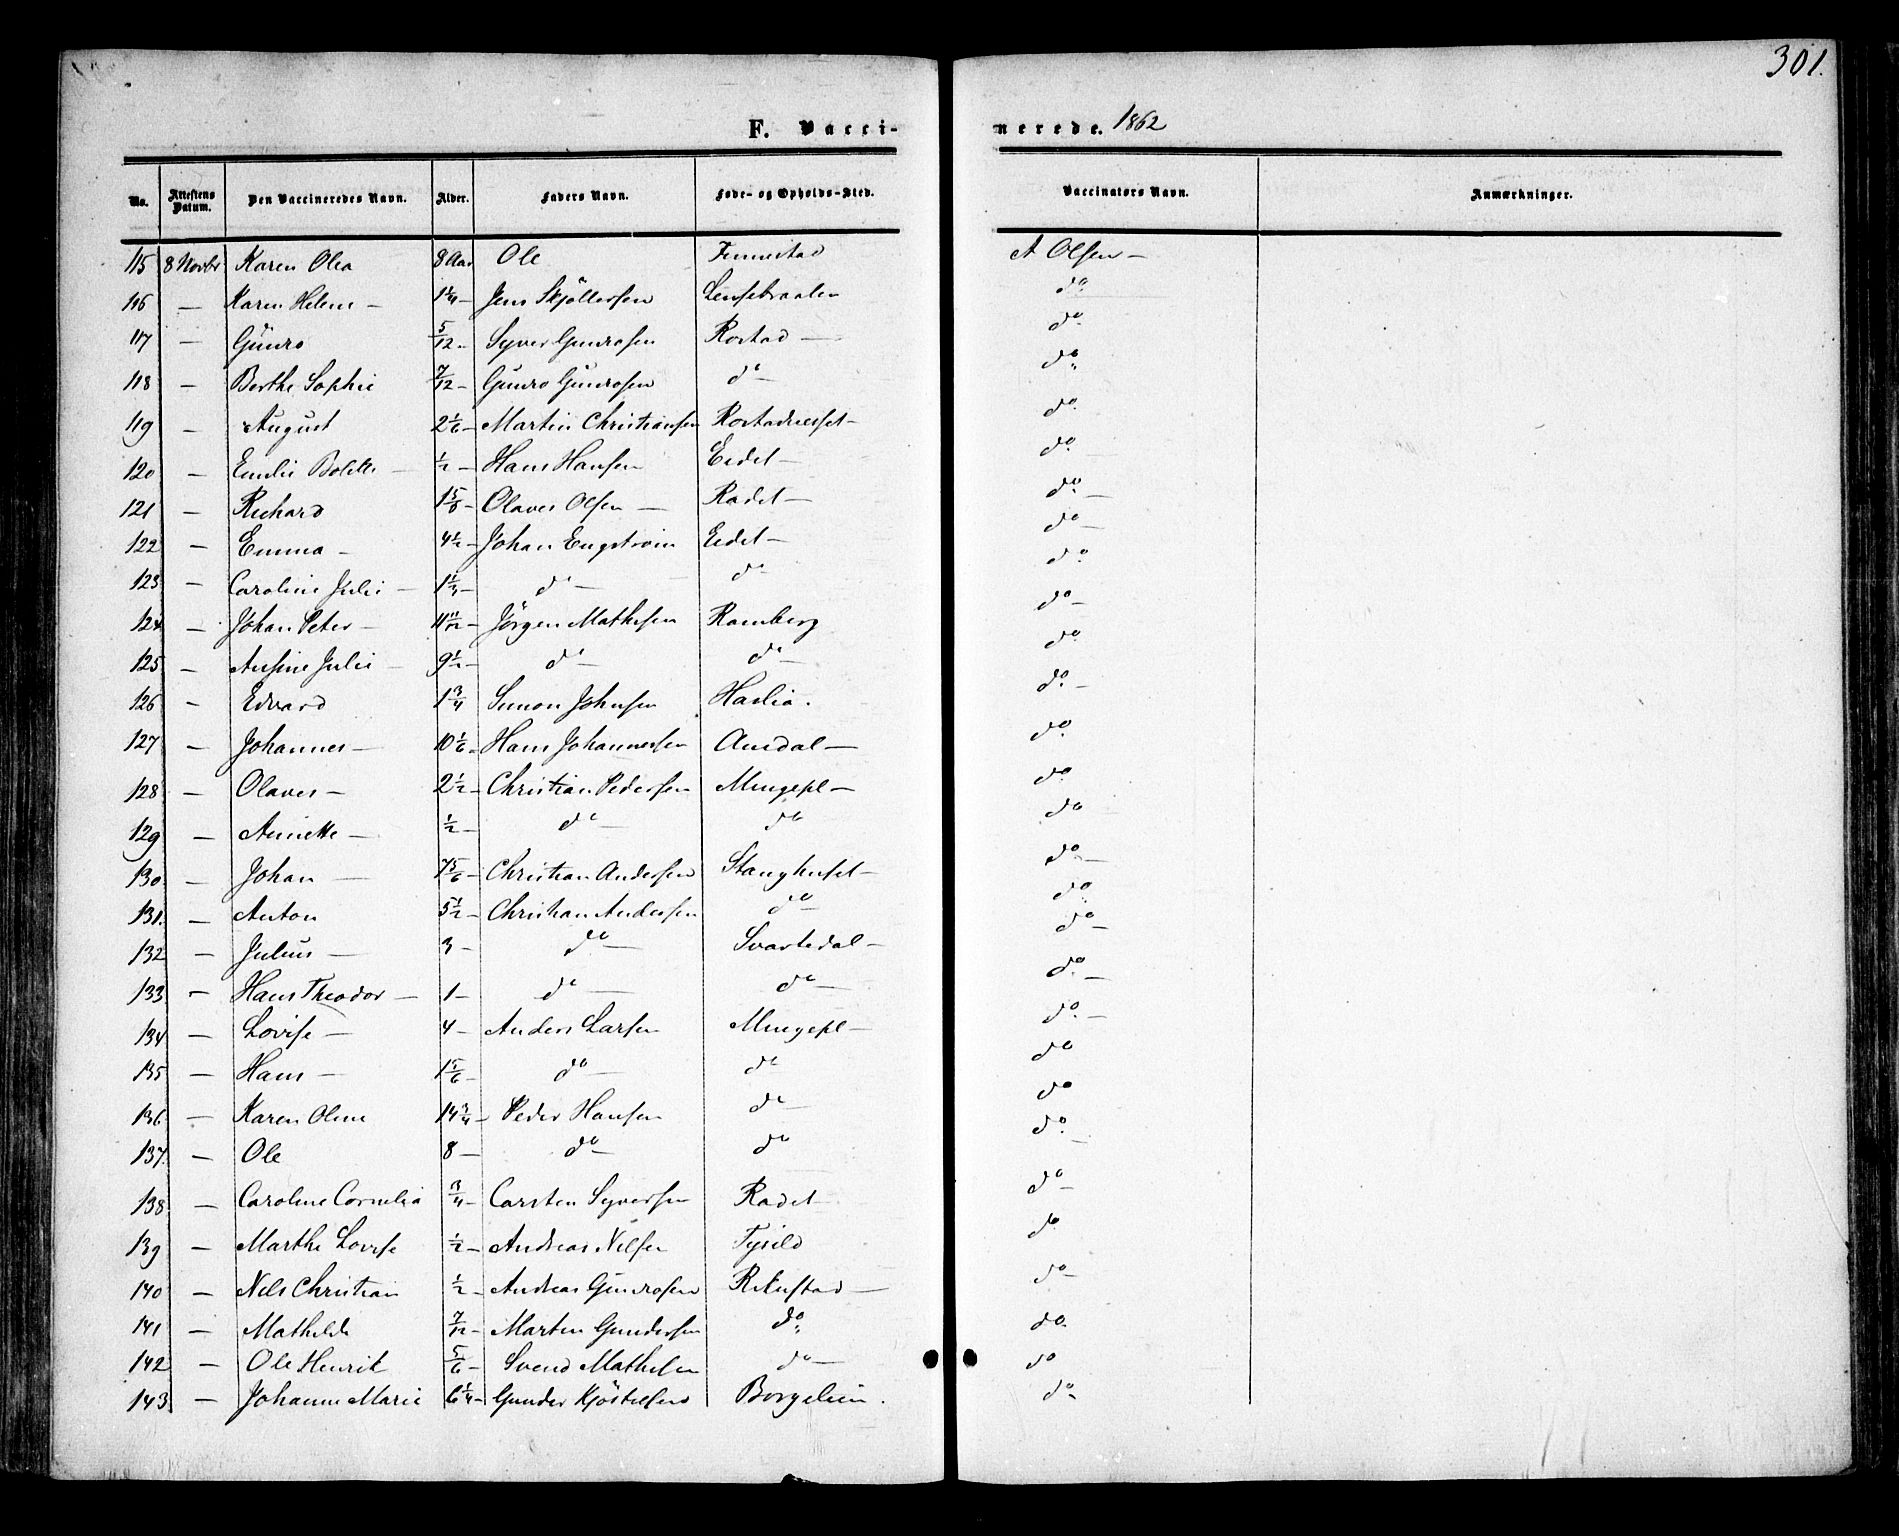 301.
F. Vaccinerede. 1862
No. | Attestens Datum. | Den Vaccineredes Navn. | Alder. | Faders Navn. | Føde- og Opholds-Sted. | Vaccinators Navn. | Anmærkninger.
115 | 8 Novbr | Karen Olea | 8 Aar | Ole | | A Olsen —
116 | — | Karen Helene — | 1 1/4 — | Jens Skjöllersen | | do
117 | — | Gunro | 5/12 — | Syver Gunrosen | Rostad — | do
118 | — | Berthe Sophie | 7/12 — | Gunro Gunrosen | do — | do
119 | — | August | 2 1/6 — | Martin Christiansen | | do
120 | — | Emilie Bolette — | 1/2 — | Hans Hansen | Eedet — | do
121 | — | Richard | 1 5/6 — | Olaves Olsen — | Radet — | do —
122 | — | Emma — | 4 1/2 — | Johan Engström | Eedet — | do —
123 | — | Caroline Julie — | 1 1/3 — | do — | do | do
124 | — | Johan Peter — | 11 11/12 — | Jörgen Mathesen | Ramberg | do —
125 | — | Ansine Julie — | 9 1/2 — | do — | do — | do
126 | — | Edvard | 1 3/4 | Simon Johnsen | Haslia . | do —
127 | — | Johannes — | 10 1/6 — | Hans Johannessen | Ausdal — | do
128 | — | Olaves — | 2 1/2 — | Christian Pedersen | Mingepl — | do
129 | — | Annette — | 1/2 — | do — | do | do
130 | — | Johan — | 7 5/6 — | Christian Andersen | Stanghuset — | do —
131. | — | Anton | 5 1/2 — | Christian Andersen | do — | do
132 | — | Julius — | 3 — | do — | Svartedal — | do —
133 | — | Hans Theodor — | 1 — | do — | do — | do —
134 | — | Lovise — | 4 — | Anders Larsen | Mingepl — | do —
135 | — | Hans — | 1 5/6 — | do — | do | do
136 | — | Karen Oline | 14 3/4 — | Peder Hansen | do — | do
137. | — | Ole | 8 — | do — | do | do —
138 | — | Caroline Cornelia | 3/4 — | Carsten Syversen | Radet — | do —
139 | — | Marthe Lovise | 1/2 — | Andreas Nilsen | | do
140 | — | Nils Christian | 1/2 — | Andreas Gunrosen | Rikustad — | do —
141 | — | Mathilde | 7/12 — | Marten Gundersen | do | do
142 | — | Ole Henrik | 5/6 — | Svend Mathesen | do — | do
143 | — | Johanne Marie | 6 1/4 — | Gunder Kjöstelsen | Borgelien . | do